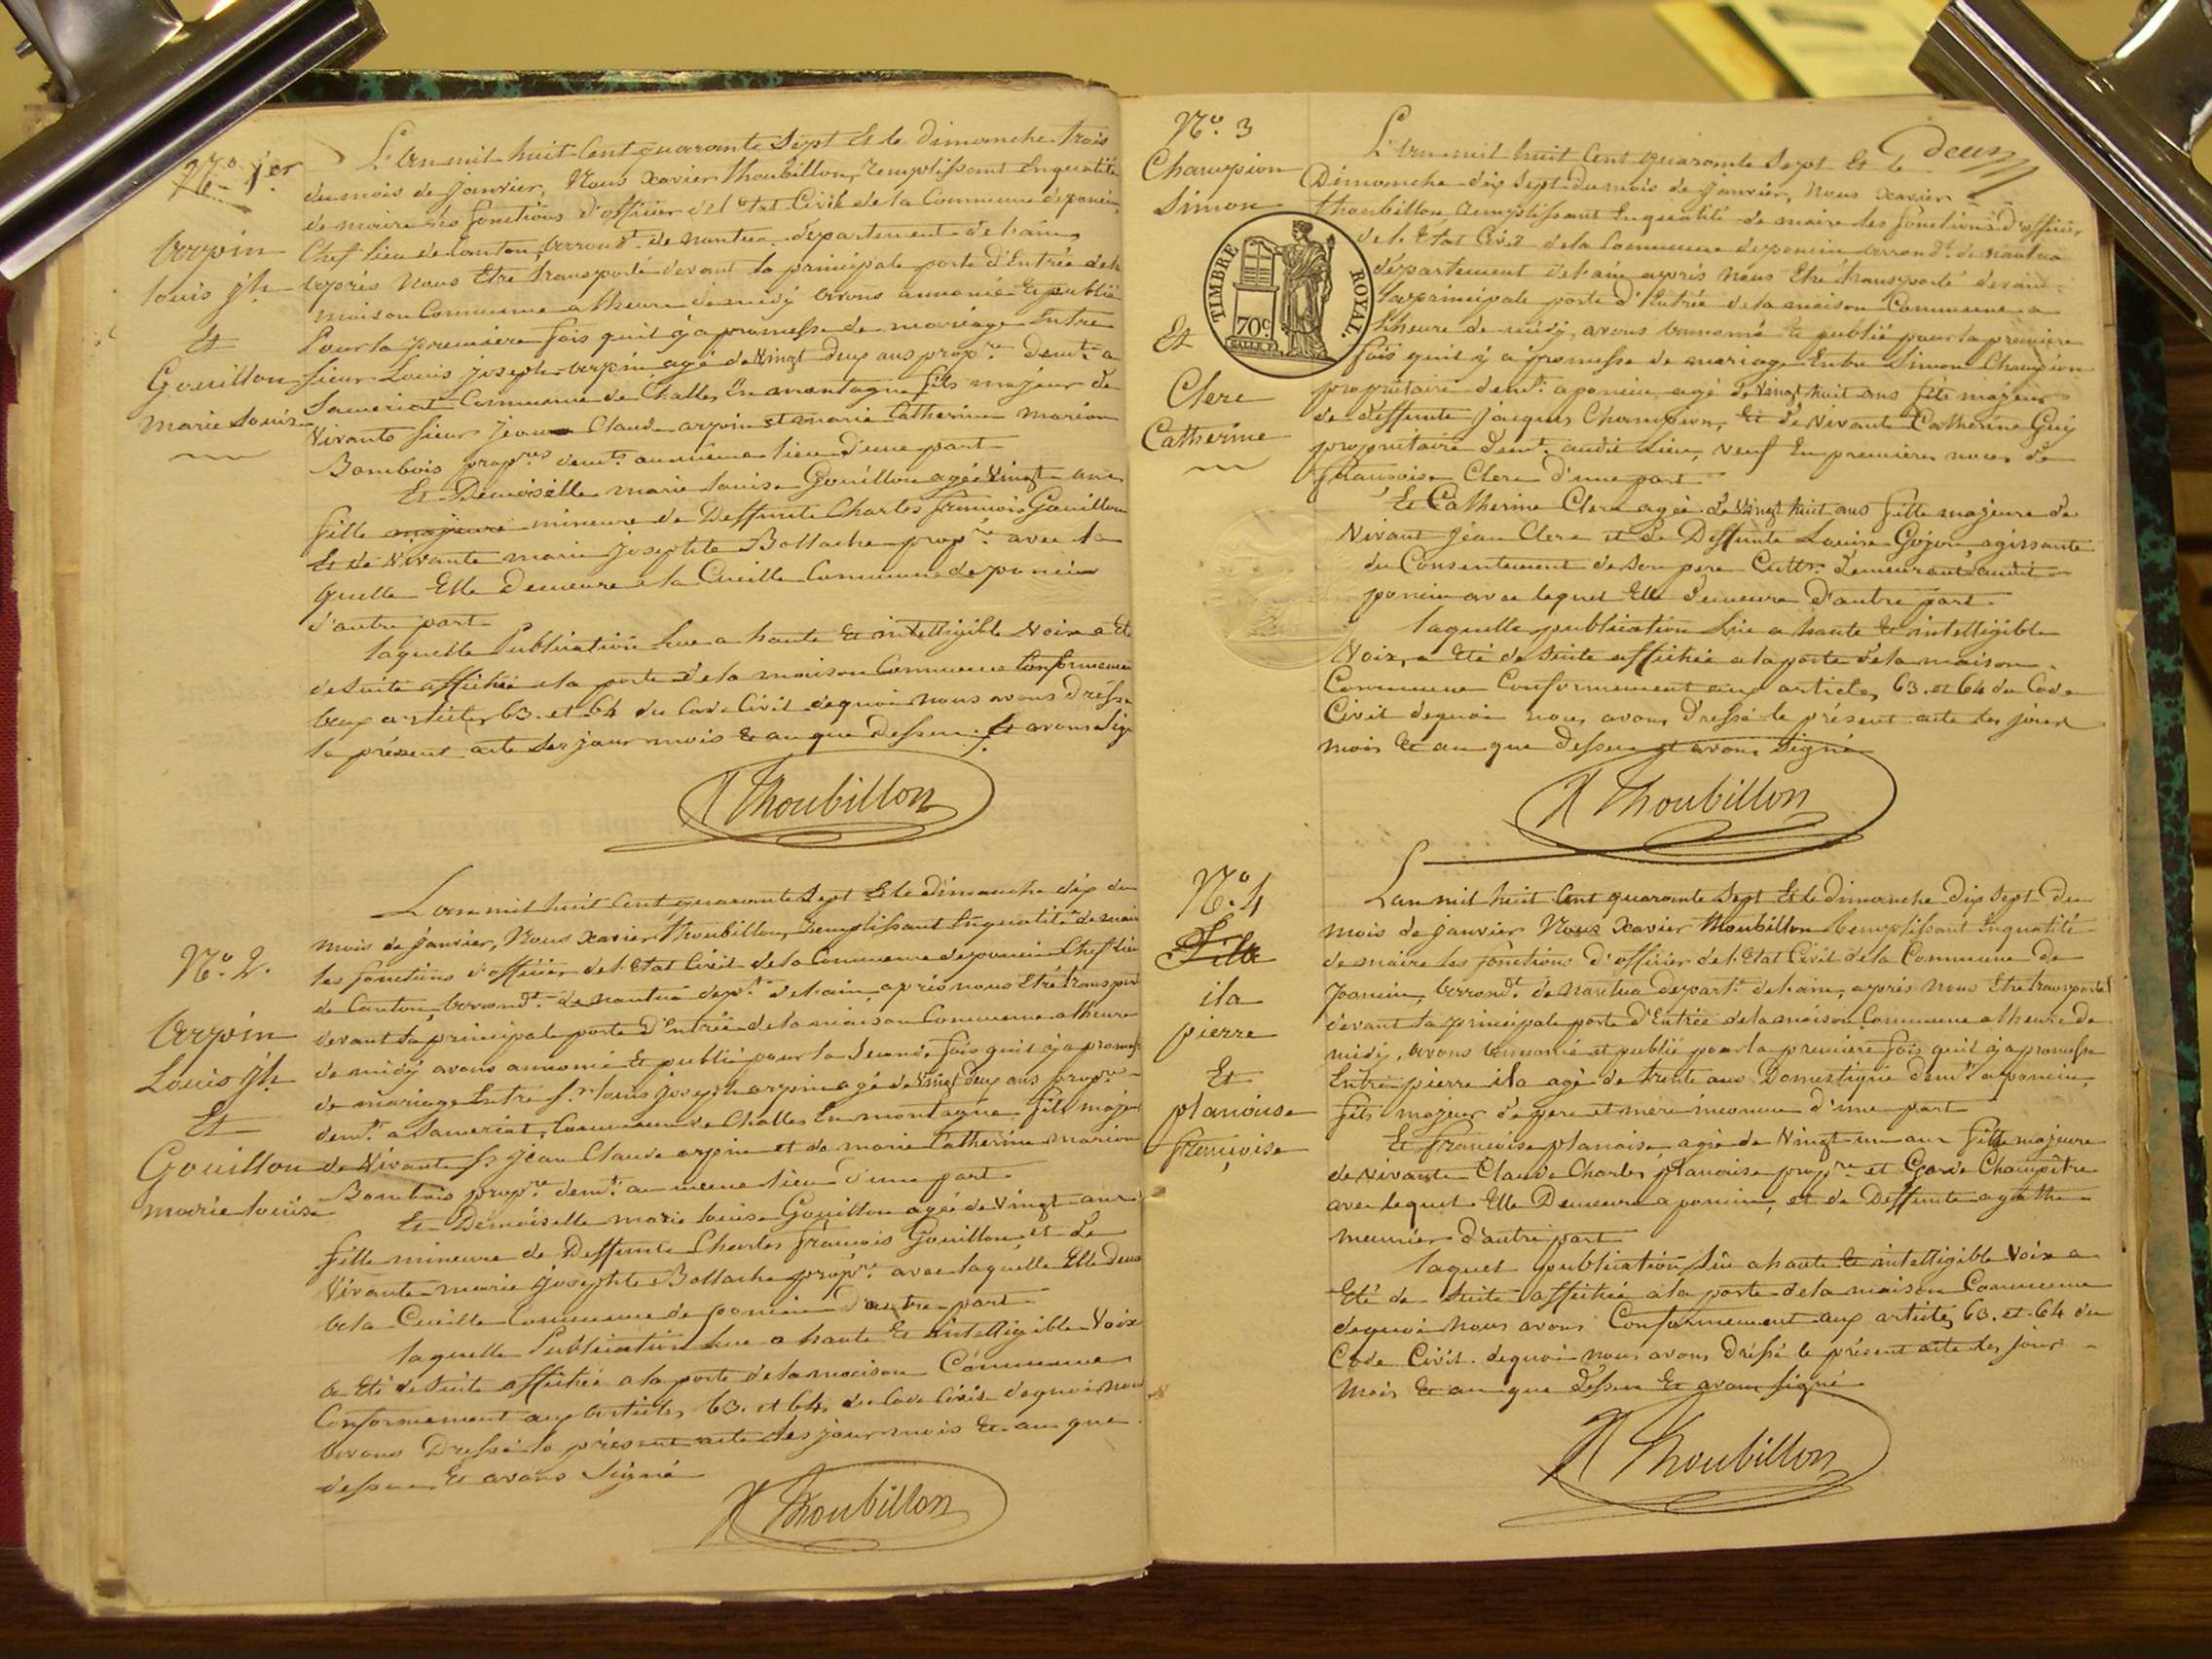 N.o 1er
Arpin
louis jh
Et
Gouillon
marie louise
L'an mil huit Cent quarante Sept Et le dimanche trois
du mois de janvier, Nous xavier thoubillon, remplissant Enqualité
de maire les fonctions d'officier del'Etat Civil de la Commune deponcin
Chef lieu de Canton, arrond.t de nantua, département del'ain,
après Nous Etre transporté devant la principale porte d'Entrée dela
maison Commune a lheure de midy avons annoncé Et publié
Pour la premiere fois quil y a promesse de mariage Entre
sieur Louis joseph arpin agé de Vingt deux ans prop.re dem.t a
Commune de Challes En montagne fils majeur de
Vivants sieur jean Claude arpin et marie Catherine marion
Bombois prop.res dem.ts au meme lieu d'une part
Et Demoiselle marie louise Gouillon agée Vingt ans
fille majeure mineure de Deffunt Charles françois Gouillon
Et de Vivante marie josephte Bollache prop.re avec la
quelle Elle Demeure a la Cueille Commune de poncin
d'autre part
laquelle Publication lue a haute Et intelligible Voix a Eté
desuite affichée a la porte de la maison Commune Conformement
aux articles 63. et 64 du Code Civil dequoi nous avons dréssé
le présent acte les jour mois & an que dessus. Et avons Signé
X Thoubillon
N.o 2.
Arpin
Louis jh
Et
Gouillon
marie louise
L'an mil huit Cent quarante Sept Et le Dimanche dix du
mois de janvier, Nous xavier Thoubillon, remplissant Enqualité de maire
les fonctions d'officier del'Etat Civil de la Commune deponcin Chef lieu
de Canton, arrond.t de nantua dep.t del'ain, après nous Etre transporté
devant la principale porte d'Entrée dela maison Commune alheure
de midy avons annoncé Et publié pour la Seconde fois quil y a promesse
de mariage Entre S.r louis joseph arpin agé de Vingt deux ans prop.re
dem.t a Commune de Challes En montagne fils majeur
de Vivants S.r jean Claude arpin et de marie Catherine marion
Bombois prop.re dem.t au meme lieu d'une part
Et Demoiselle marie louise Gouillon agée de Vingt ans
fille mineure de Deffunt Charles françois Gouillon et de
Vivante marie josephte Bollache prop.re avec laquelle Elle demeure
a la Cueille Commune de poncin d'autre part
laquelle Publication lue a haute Et intelligible Voix
a Eté de Suite affichée a la porte de la maison Commune
Conformement aux articles 63. et 64 du Code Civil dequoi nous
avons Dressé le présent acte les jour mois & an que
dessus Et avons Signé
X Thoubillon
N.o 3
Champion
Simon
Et
Clerc
Catherine
TIMBRE ROYAL.
70c
deux
L'an mil huit Cent quarante Sept Et le
Dimanche dix Sept du mois de janvier, nous xavier
thoubillon, remplissant Enqualité de maire les fonctions d'officier
de l'Etat Civil dela Commune deponcin arrond.t de nantua
département del'ain après nous Etre transporté devant
la principale porte d'Entrée de la maison Commune a
l'heure de midy, avons annoncé & publié pour la premiere
fois quil y a promesse de mariage Entre Simon Champion
propriétaire dem.t a poncin agé de Vingt huit ans fils majeur
de deffunt jacques Champion, Et de Vivante Catherine Guy
propriétaire dem.t audit Lieu, veuf En premieres noces de
françoise Clerc d'une part
Et Catherine Clerc agée de Vingt huit ans fille majeure de
Vivant Jean Clerc et de Deffunte Louise Gojon, agissante
du Consentement de Son pere Cult.r demeurant audit
poncin avec lequel Elle demeure d'autre part
laquelle publication lue a haute & intelligible
Voix, a Eté de Suite affichée a la porte de la maison
Commune Conformement aux articles 63. et 64 du Code
Civil dequoi nous avons Dressé le présent acte les jour
mois & an que dessus et avons Signé
X Thoubillon
N.o 4
ila
pierre
Et
planoise
françoise
L'an mil huit Cent quarante Sept Et le dimanche dix Sept du
mois de janvier Nous Xavier Thoubillon remplissant Enqualité
de maire les fonctions d'officier del'Etat Civil dela Commune de
Poncin, arrond.t de nantua depart.t del'ain, après nous Etre transporté
devant la principale porte d'Entrée dela maison Commune a lheure de
midy, avons annoncé et publié pour la premiere fois quil y a promesse
Entre pierre ila agé de trente ans Domestique dem.t a poncin,
fils majeur de pere et mere inconnu d'une part
Et françoise planoise agée de Vingt un ans fille majeure
de Vivant Claude Charles planoise prop.re et Garde Champêtre
avec lequel Elle Demeure a poncin, et de Deffunte agathe
meunier d'autre part
laquel publication lue a haute & intelligible Voix a
Eté de Suite affichée a la porte de la maison Commune
dequoi nous avons Conformement aux articles 63. et 64 du
Code Civil. dequoi nous avons Dréssé le présent acte les jour
mois & an que dessus Et avons signé
X Thoubillon